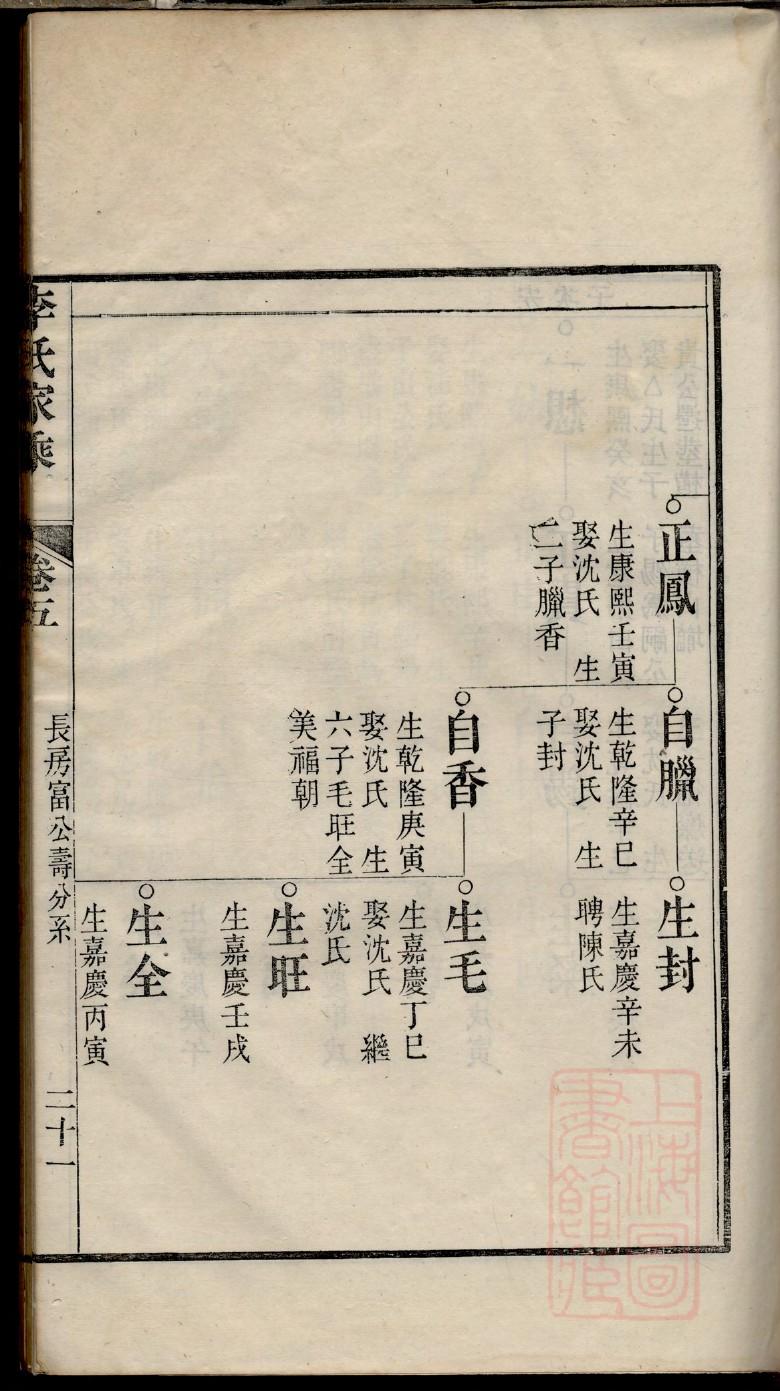 正鳳
生康熙壬寅
娶沈氏　生
二子臘香
自臘
生乾隆辛巳
娶沈氏　生
子封
生封
生嘉慶辛未
聘陳氏
自香
生乾隆庚寅
娶沈氏　生
六子毛旺全
美福朝
生毛
生嘉慶丁巳
娶沈氏　繼
沈氏
生旺
生嘉慶壬戌
生全
生嘉慶丙寅
李氏家乘
卷五
長房富公壽分系
二十一
上海圖
書館藏